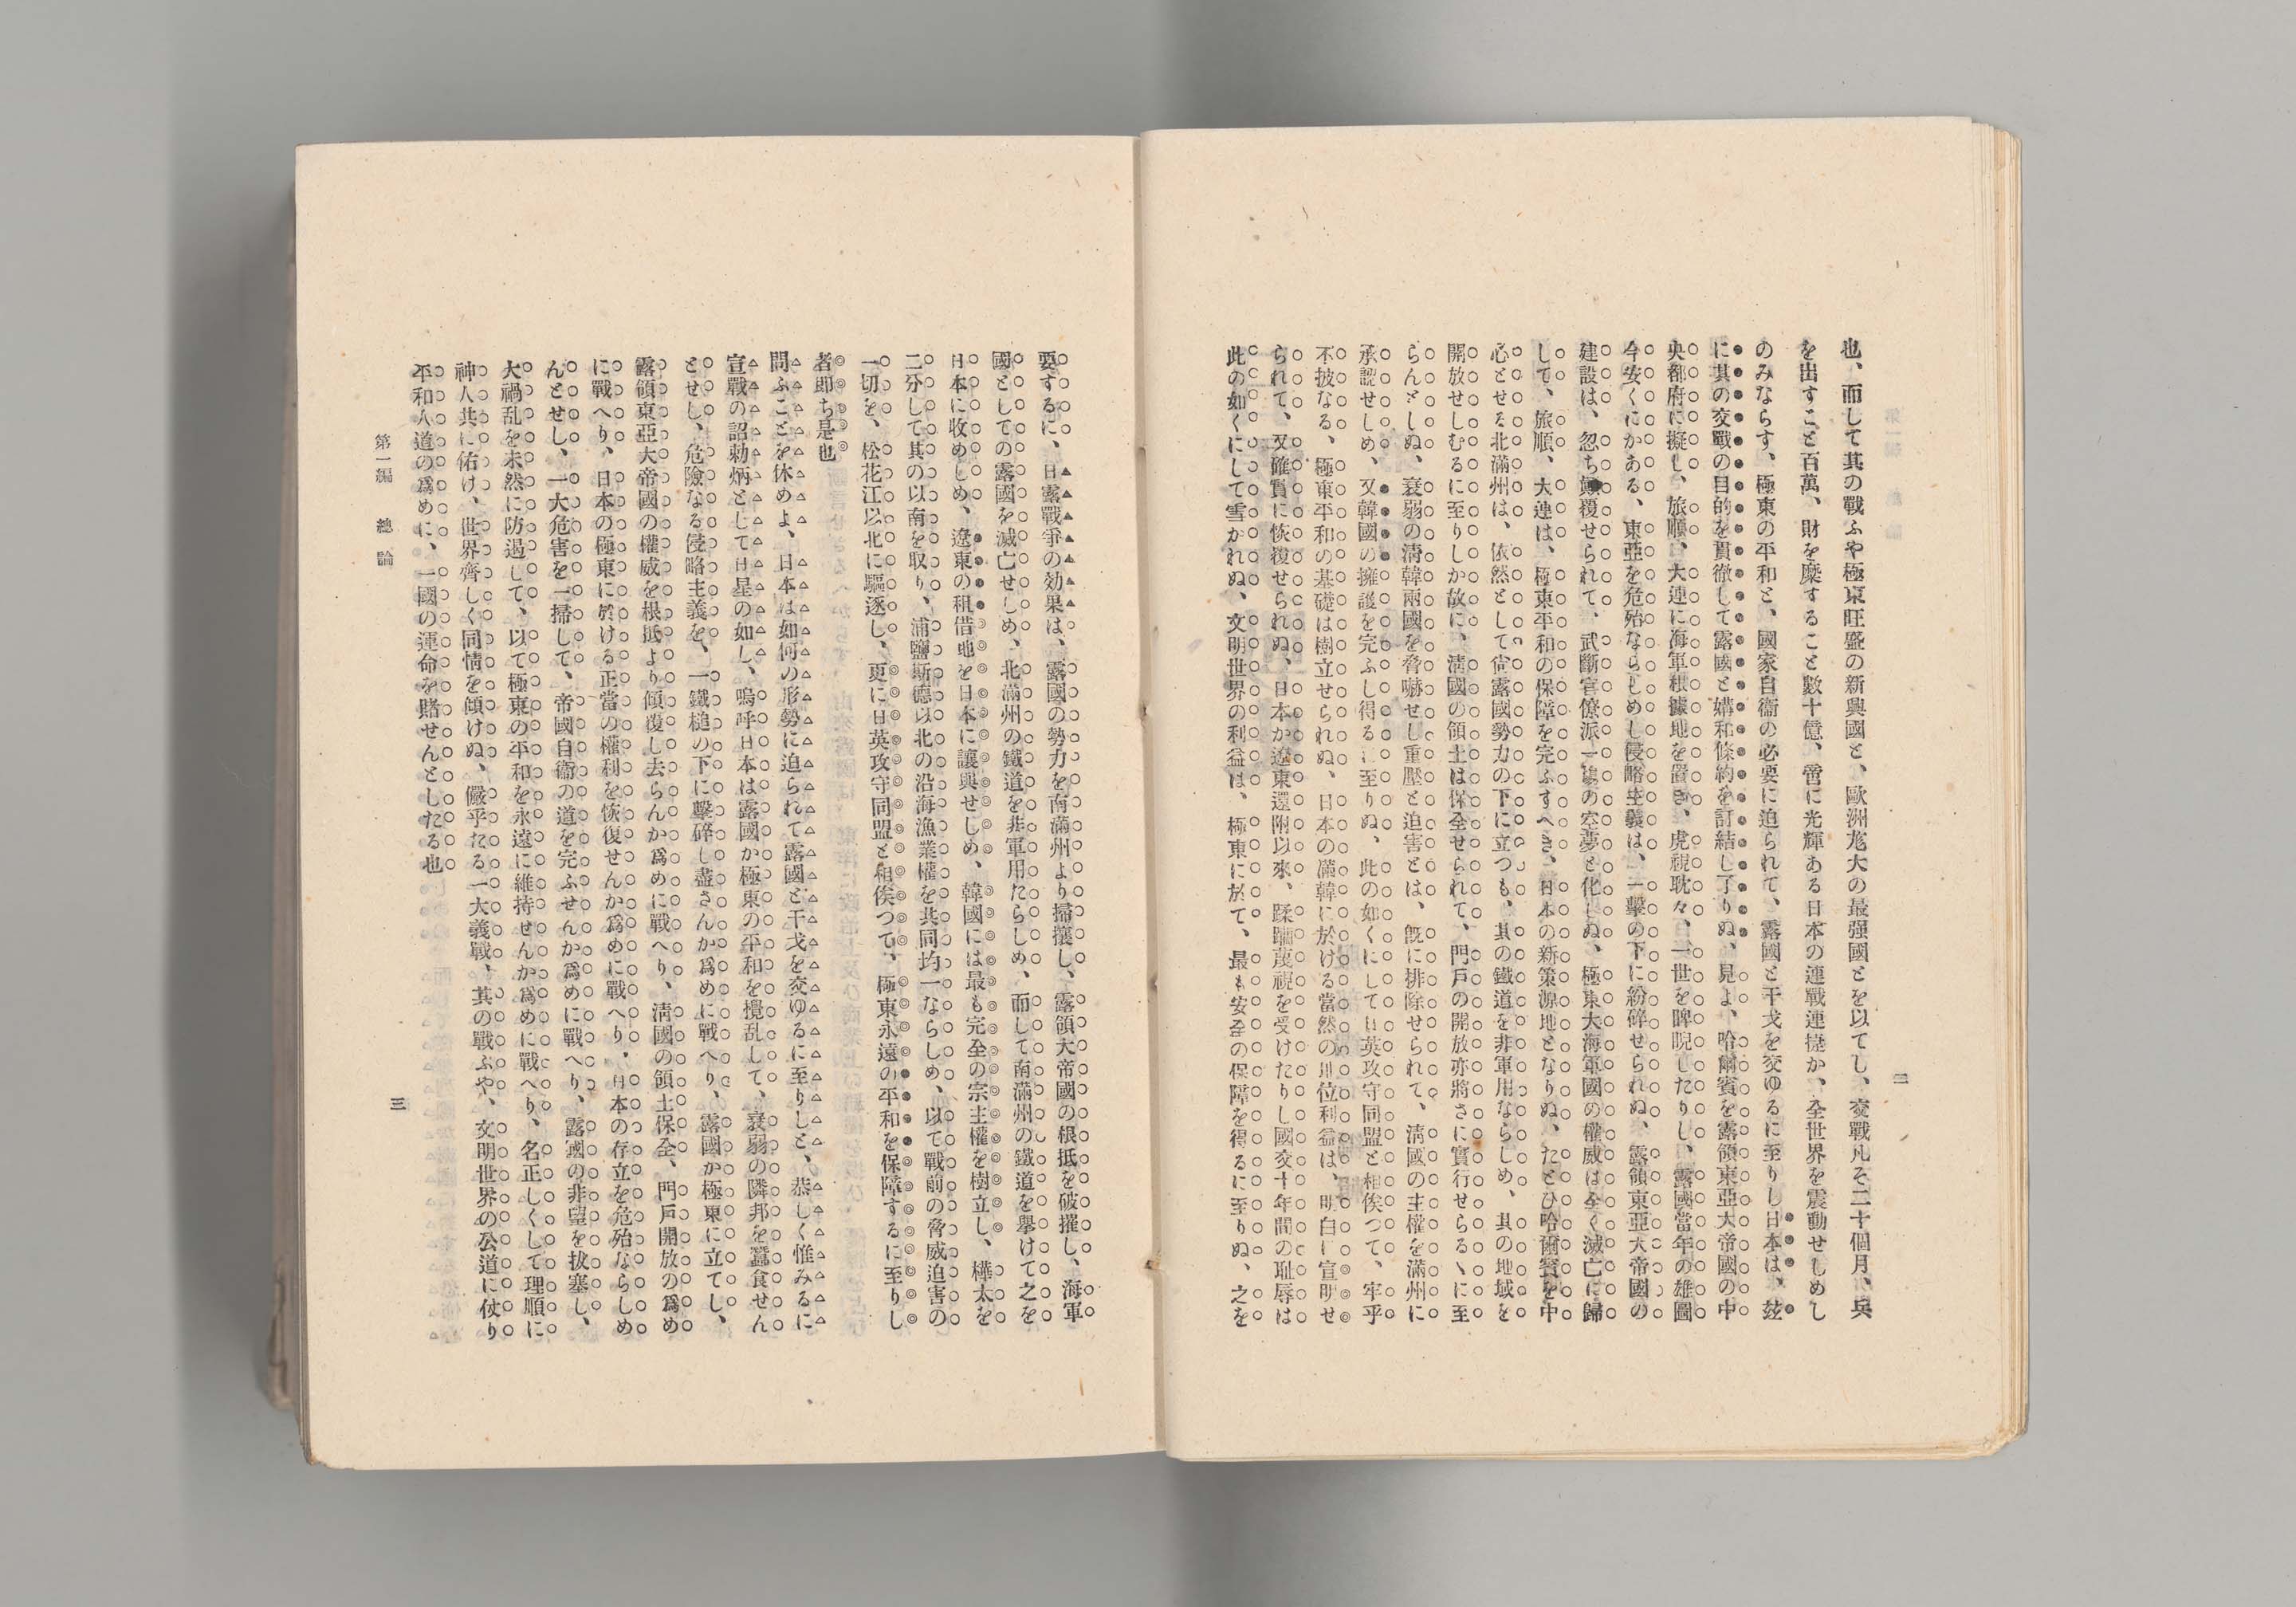 二
也、而して其の戰ふや極東旺盛の新興國と、歐洲尨大の最强國とを以てし、交戰凡そ二十個月、兵
を出すこと百萬、財を糜すること數十億、啻に光輝ある日本の連戰連捷か、全世界を震動せしめし
のみならす、極東の平和と、國家自衞の必要に迫られて、露國と干戈を交ゆるに至りし日本は、玆
に其の交戰の目的を貫徹して露國と媾和條約を訂結し了りぬ、見よ、哈爾賓を露領東亞大帝國の中
央都府に擬し、旅順、大連に海軍根據地を置き、虎視耽々、一世を睥睨したりし、露國當年の雄圖
今安くにかある、東亞を危殆ならしめし侵略主義は、一擊の下に紛碎せられぬ、露領東亞大帝國の
建設は、忽ち顚覆せられて、武斷官僚派一塲の空夢と化しぬ、極東大海軍國の權威は全く滅亡に歸
して、旅順、大連は、極東平和の保障を完ふすへき、日本の新策源地となりぬ、たとひ哈爾賓を中
心とせる北滿州は、依然として尙露國勢力の下に立つも、其の鐵道を非軍用ならしめ、其の地域を
開放せしむるに至りしか故に、淸國の領土は保全せられて、門戶の開放亦將さに實行せらるゝに至
らんとしぬ、衰弱の淸韓兩國を脅嚇せし重壓と迫害とは、旣に排除せられて、淸國の主權を滿州に
承認せしめ、又韓國の擁護を完ふし得るに至りぬ、此の如くにして日英攻守同盟と相俟つて、牢乎
不拔なる、極東平和の基礎は樹立せられぬ、日本の滿韓に於ける當然の地位利益は、明白に宣明せ
られて、又確實に恢復せられぬ、日本か遼東還附以來、蹂躪蔑視を受けたりし國交十年間の耻辱は
此の如くにして雪かれぬ、文明世界の利益は、極東に於て、最も安全の保障を得るに至りぬ、之を
要するに、日露戰爭の効果は、露國の勢力を南滿州より掃攘し、露領大帝國の根抵を破摧し、海軍
國としての露國を滅亡せしめ、北滿州の鐵道を非軍用たらしめ、而して南滿州の鐵道を擧けて之を
日本に收めしめ、遼東の租借地を日本に讓與せしめ、韓國には最も完全の宗主權を樹立し、樺太を
二分して其の以南を取り、浦鹽斯德以北の沿海漁業權を共同均一ならしめ、以て戰前の脅威迫害の
一切を、松花江以北に驅逐し、更に日英攻守同盟と相俟つて、極東永遠の平和を保障するに至りし
者卽ち是也
問ふことを休めよ、日本は如何の形勢に迫られて露國と干戈を交ゆるに至りしと、恭しく惟みるに
宣戰の詔勅炳として日星の如し、嗚呼日本は露國か極東の平和を攪乱して、衰弱の隣邦を蠶食せん
とせし、危險なる侵略主義を、一鐵槌の下に擊碎し盡さんか爲めに戰へり、露國か極東に立てし、
露領東亞大帝國の權威を根抵より傾覆し去らんか爲めに戰へり、淸國の領土保全、門戶開放の爲め
に戰へり、日本の極東に於ける正當の權利を恢復せんか爲めに戰へり、日本の存立を危殆ならしめ
んとせし、一大危害を一掃して、帝國自衞の道を完ふせんか爲めに戰へり、露國の非望を拔塞し、
大禍乱を未然に防遏して、以て極東の平和を永遠に維持せんか爲めに戰へり、名正しくして理順に
神人共に佑け、世界齊しく同情を傾けぬ、儼乎たる一大義戰、其の戰ふや、文明世界の公道に仗り
平和人道の爲めに、一國の運命を賭せんとしたる也
第一編　總論
三